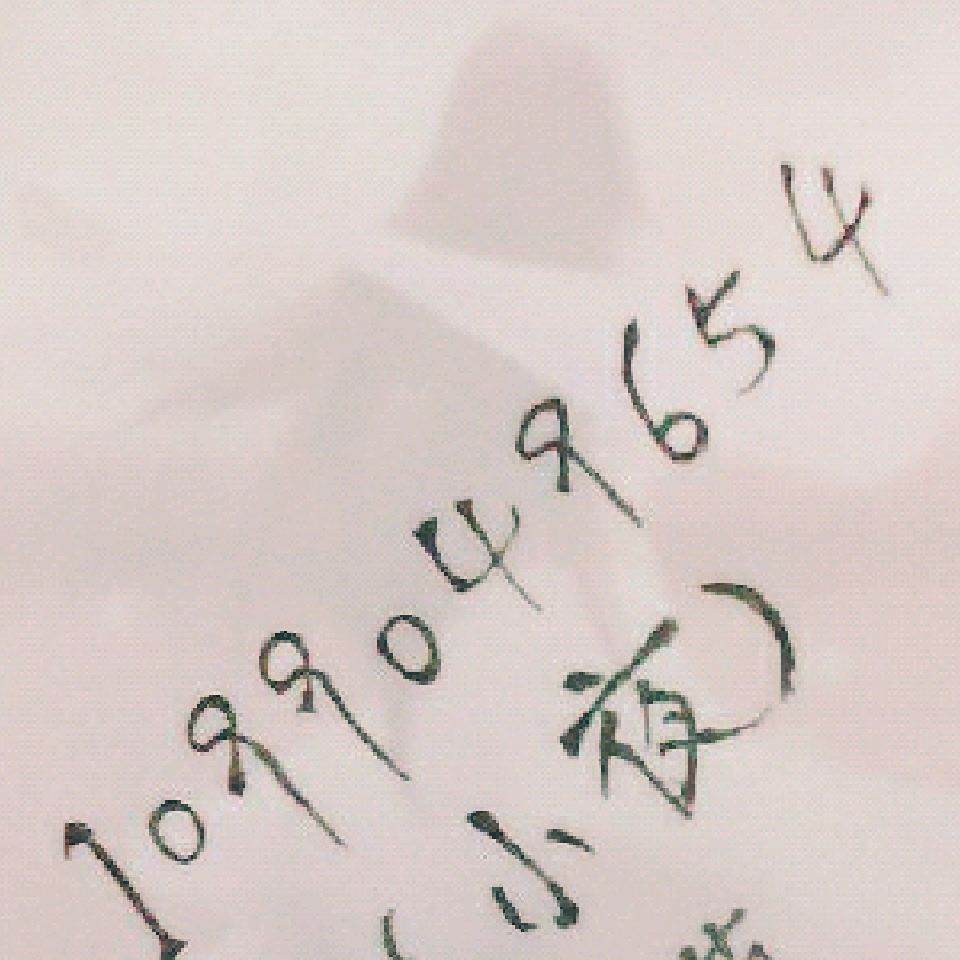 1099049654
(小 )